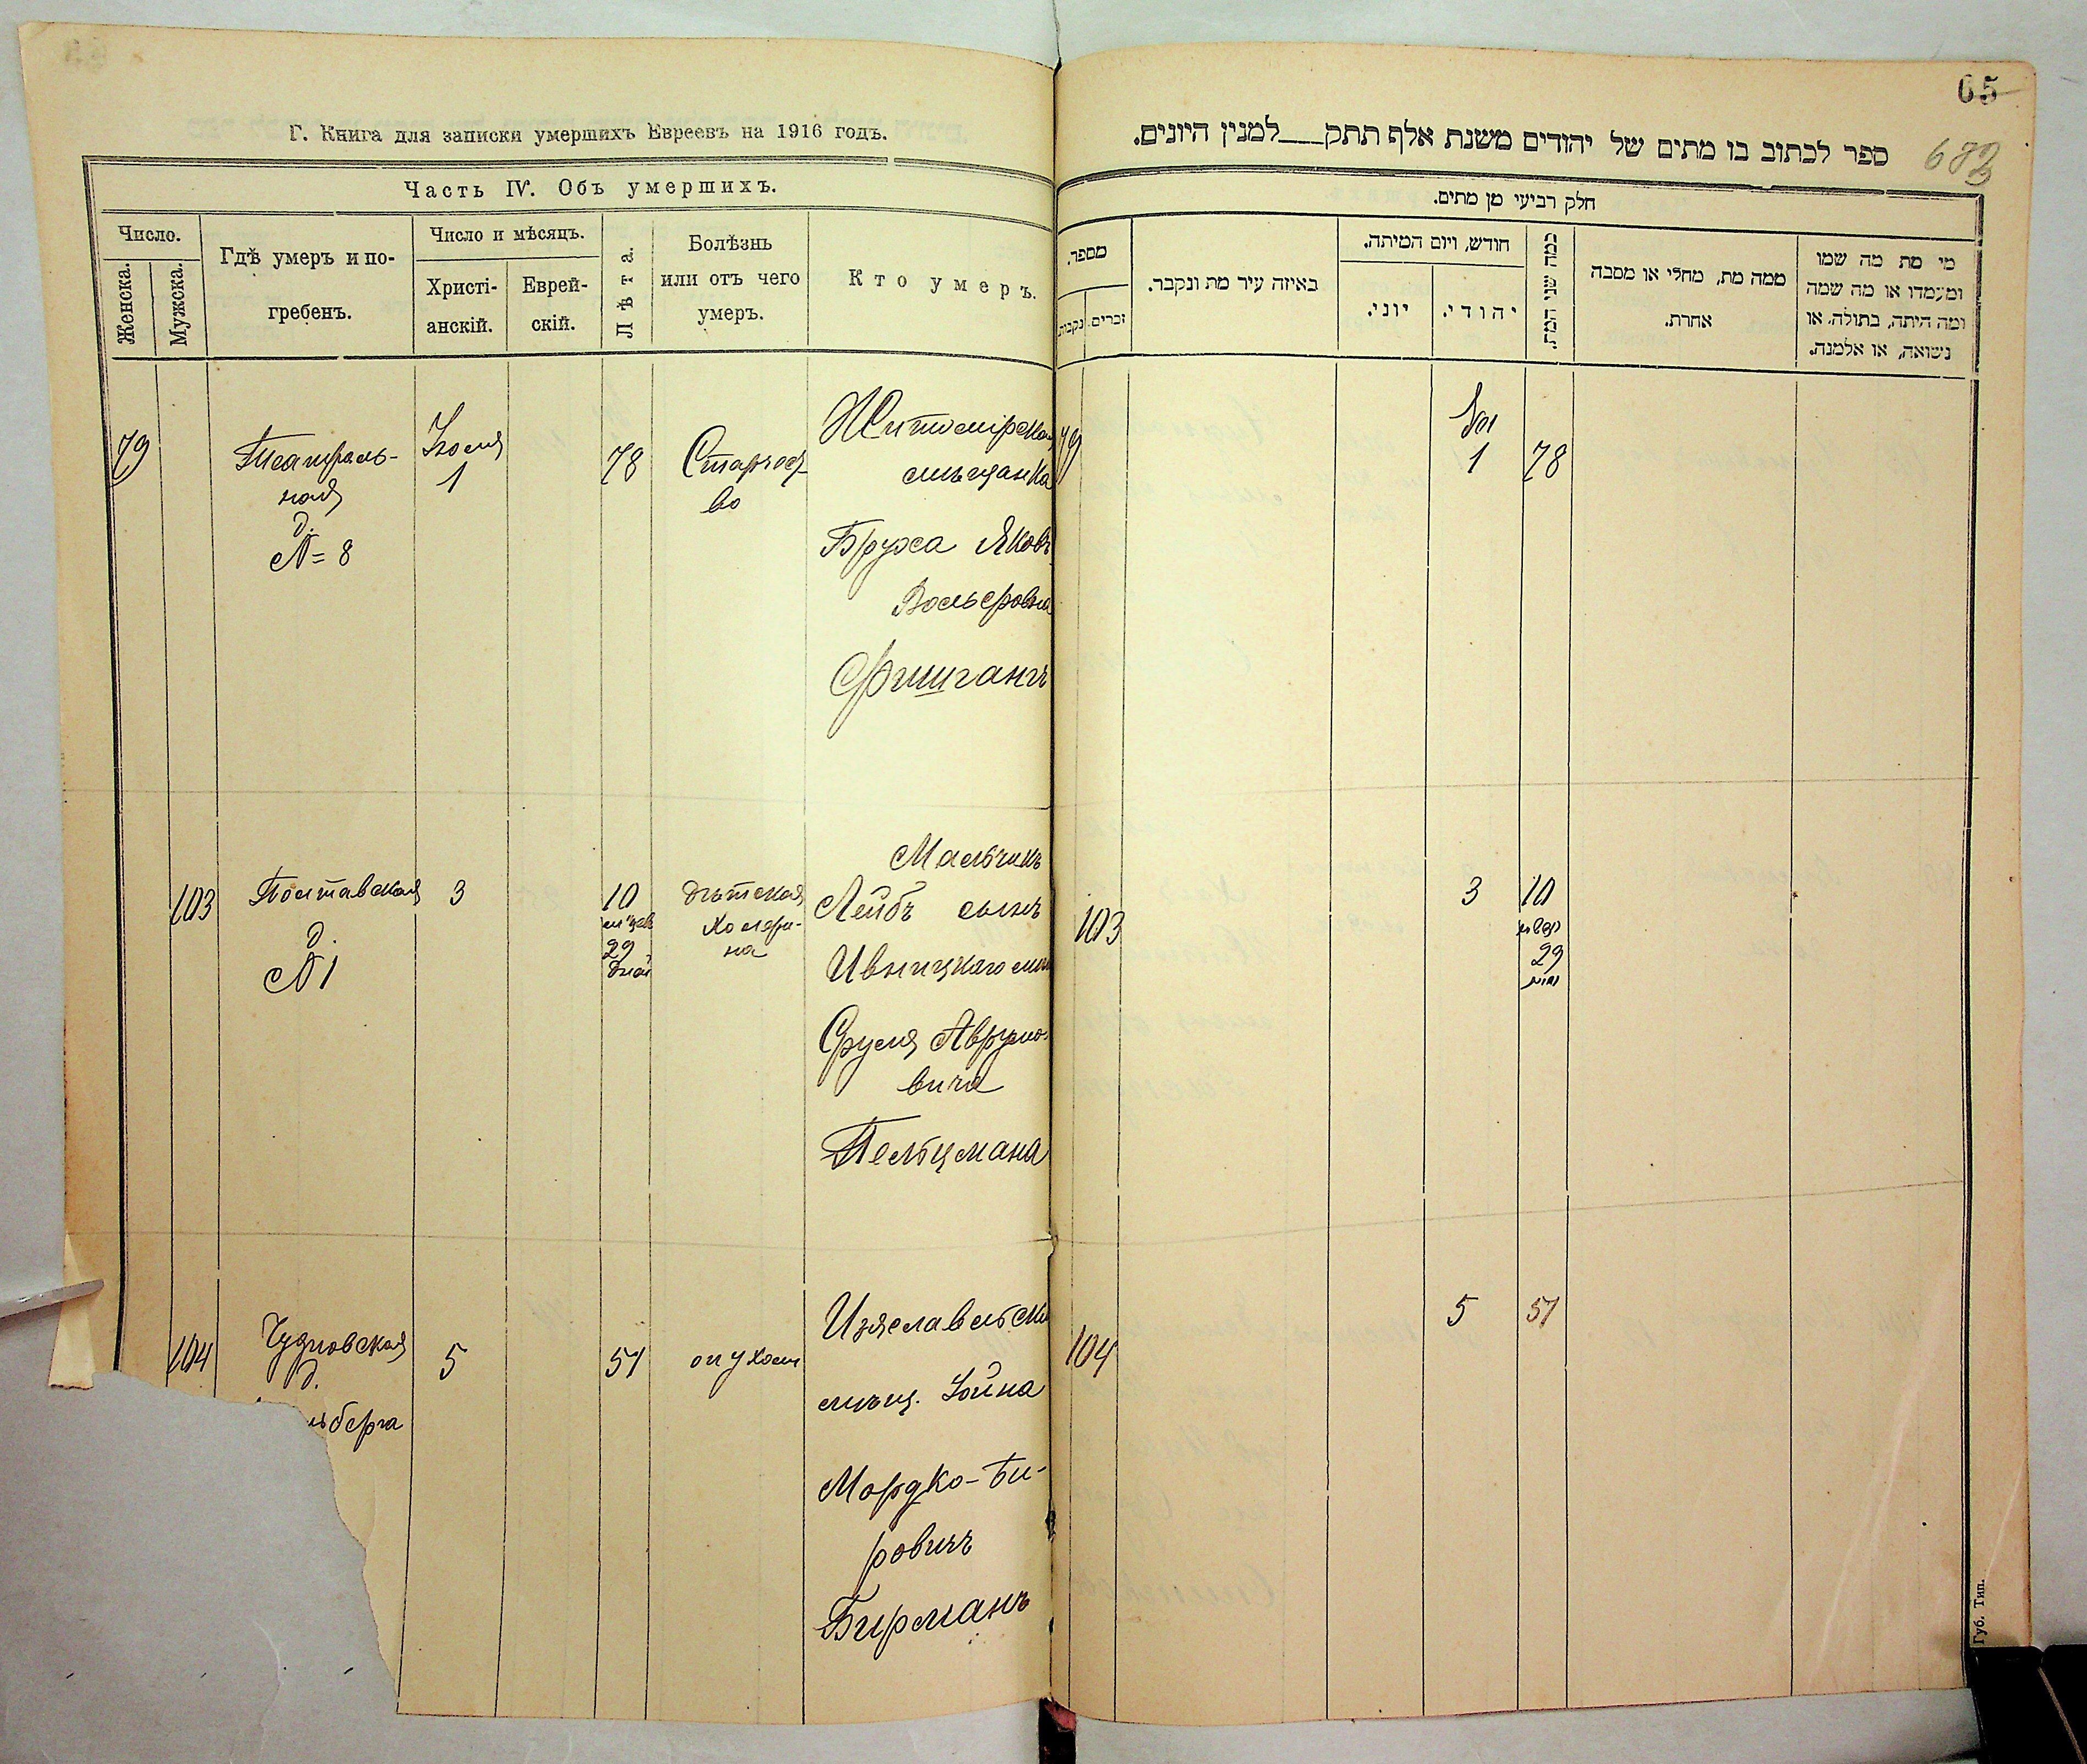 65
683
Г. Книга для записки умершихъ Евреевъ на 1916 годъ.
Часть IV. Объ умершихъ.
Число.
Женска.
Мужска.
Гдѣ умеръ и по-
гребенъ.
Число и мѣсяцъ.
Христі-
анскій.
Еврей-
скій.
Лѣта.
Болѣзнь
или отъ чего
умеръ.
Кто умеръ.
79
Театраль-
ная
д.
№ 8
Іюля
1
78
Старчест-
во
Житомірская
мѣщанка
Бруха
Вольфовна
Фишганъ
103
Полтавская
д.
№ 1
3
10
29
дней
дѣтская
холери-
на
Мальчикъ
Лейбъ сынъ
Ивницкаго
Сруля Аврумо-
вича
Пельцмана
104
Чудновская
д.
берга
5
51
опухоль
мѣщ. Іойна
Мордко-Бе-
ровичъ
Бирманъ
ספר לכתוב בו מתים של יהודים משנת אלף תתק___למנין היונים.
חלק רביעי מן מתים.
מספר.
נקבות
זכרים
באיזה עיר מת ונקבר.
חודש, ויום המיתה.
יוני.
יהודי.
כמה שני המת.
ממה מת, מחלי או מסבה
אחרת.
מי מת מה שמו
ומעמדו או מה שמה
ומה היתה, בתולה, או
נשואה, או אלמנה.
79
יולי
1
78
103
3
10
29
104
5
51
Губ. Тип.